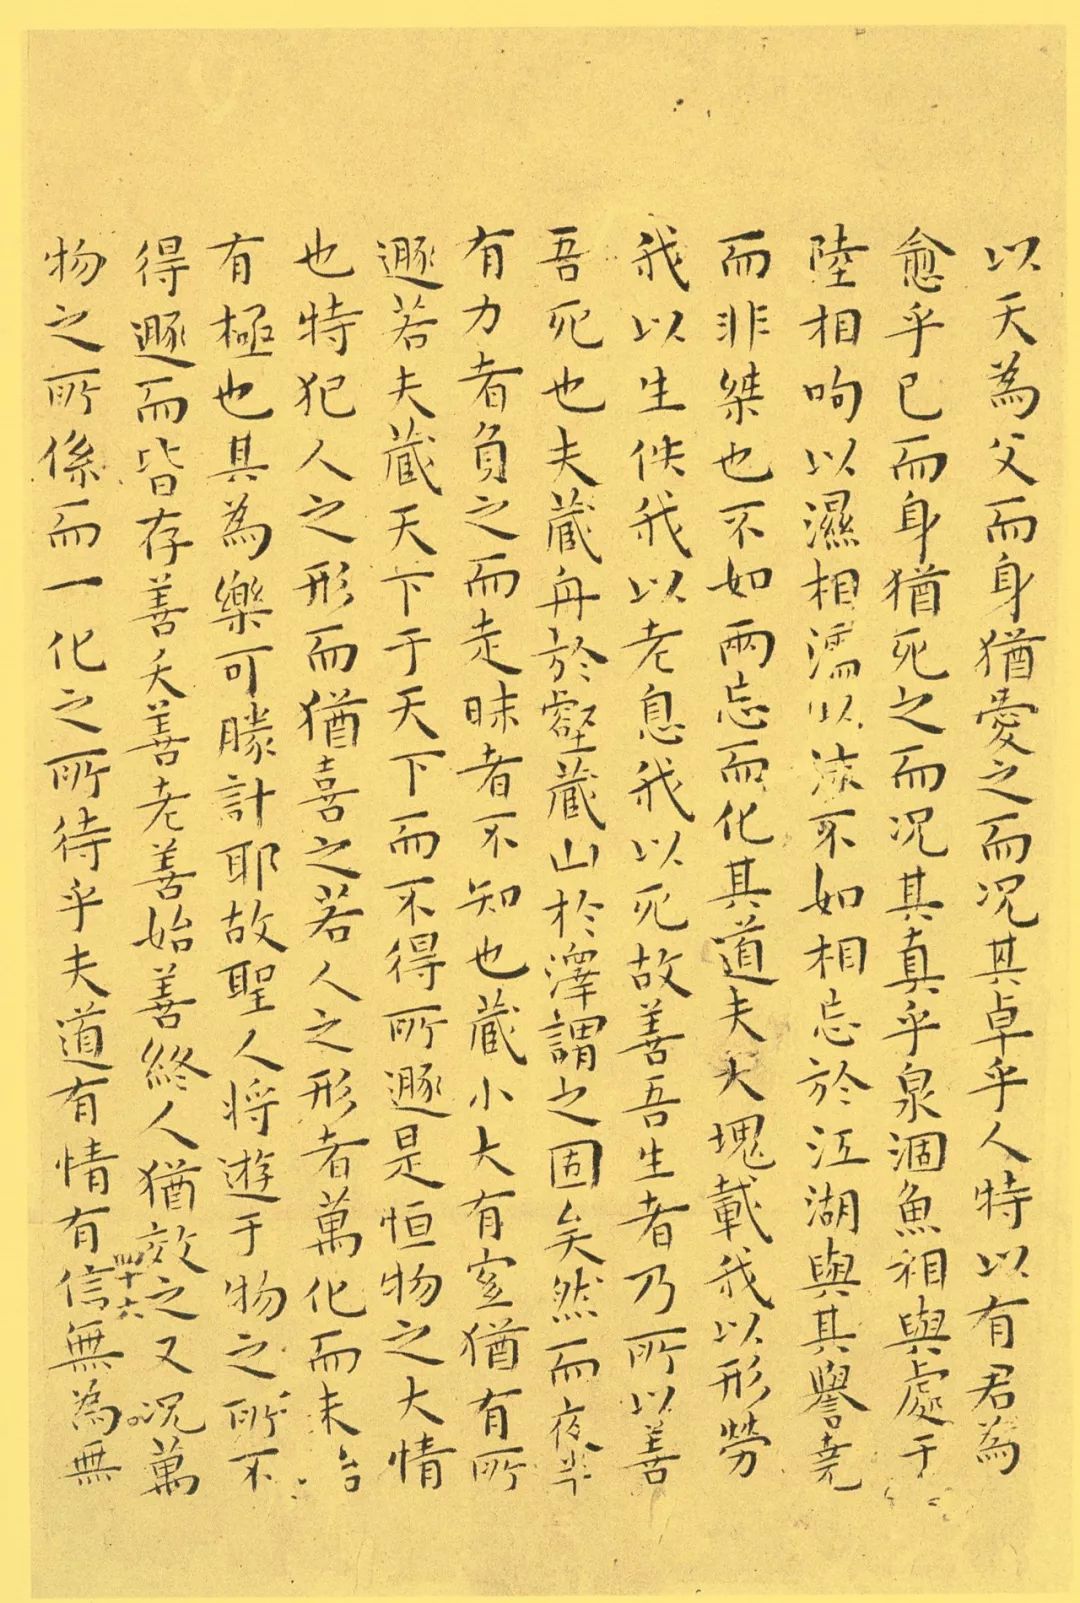 以天為父而身猶愛之而况其卓乎人特以有君為
愈乎已而身猶死之而况其真乎泉涸魚相與處于
陸相呴以濕相濡以沫不如相忘於江湖與其譽堯
而非桀也不如兩忘而化其道夫大塊載我以形勞
我以生佚我以老息我以死故善吾生者乃所以善
吾死也夫藏舟於壑藏山於澤謂之固矣然而夜半
有力者負之而走昧者不知也藏小大有宜猶有所
遯若夫藏天下于天下而不得所遯是恒物之大情
也特犯人之形而猶喜之若人之形者萬化而未始
有極也其為樂可勝計耶故聖人将遊于物之所不
得遯而皆存善夭善老善始善終人猶效之又况萬
物之所係而一化之所待乎夫道有情有信無為無
四十六